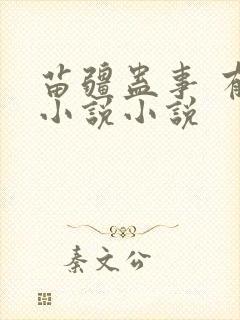 苗疆蛊事 有
小说小说
秦文公